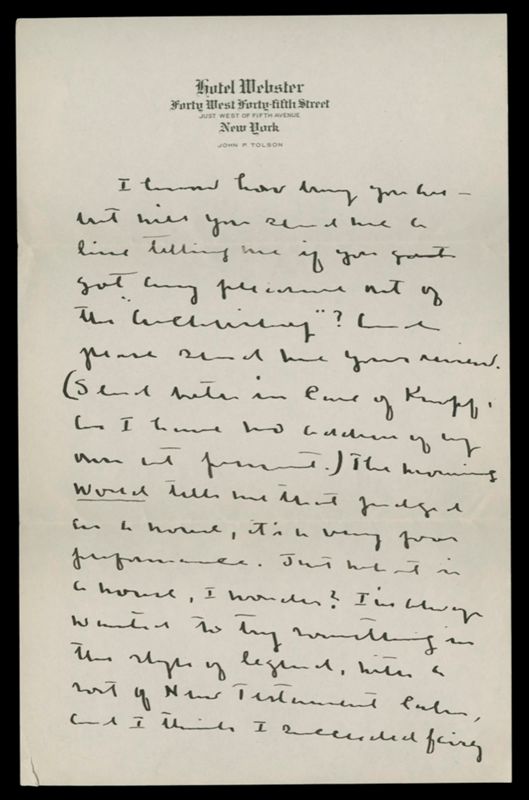 Hotel Webster
Forty West Forty-fifth Street
JUST WEST OF FIFTH AVENUE
New York
JOHN P. TOLSON
I know how busy you are –
but will you send me a
line telling me if you
got any pleasure out of
the "Archbishop"? And
please send me your review.
(Send letter in care of Knopf,
as I have no address of my
own at present.) The morning
World tells me that judged
as a novel, it's a very poor
performance. Just what is
a novel, I wonder? I've always
wanted to try something in
the style of legend, with a
sort of New Testament calm,
and I think I succeeded fairly